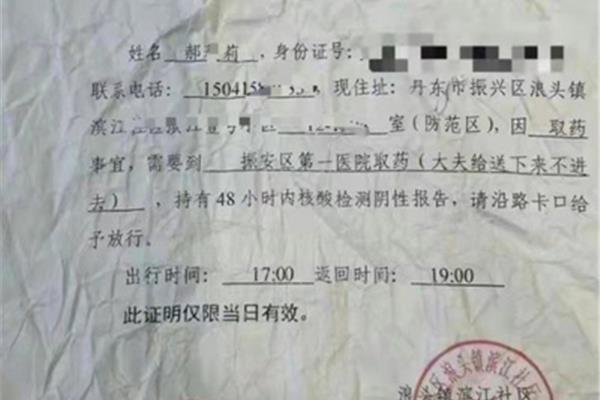 姓名 郝 莉 ,身份证号:
联系电话: 15041 现住址: 丹东市振兴区浪头镇
滨江 室(防范区),因 取药
事宜,需要到 振安区第一医院取药(大夫给送下来不进
去) ,持有48小时内核酸检测阴性报告,请沿路卡口给
予放行。
出行时间: 17:00 返回时间: 19:00
此证明仅限当日有效。
区浪头镇滨江社区
浪头镇滨江社区